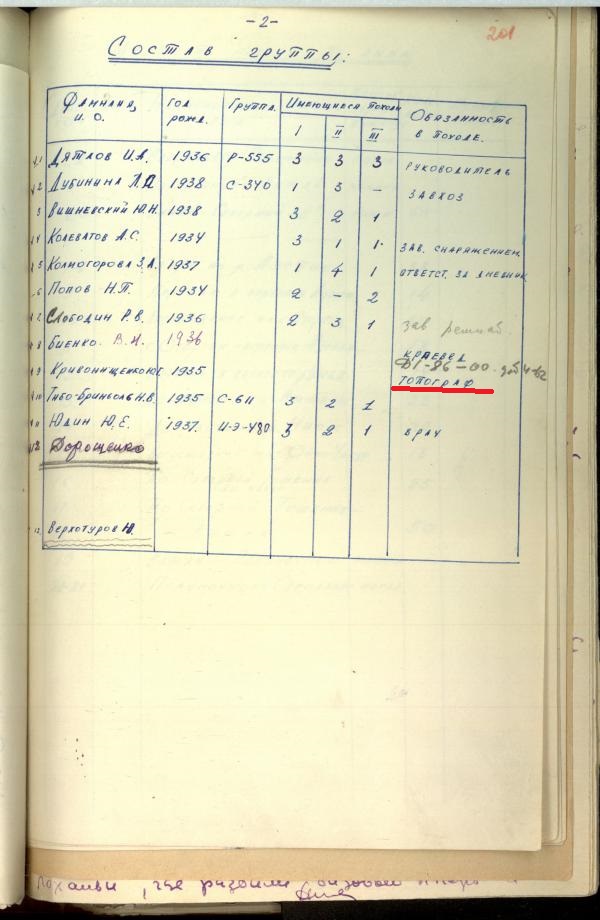 -2-
201
Состав группы:
Фамилия, и. о. Год рожд. Группа. Имеющиеся походы Обязанность в походе.
I II III
1 Дятлов И.А. 1936 Р-555 3 3 3 руководитель
2 Дубинина Л.А 1938 С-340 1 3 – завхоз
3 Вишневский Ю.Н. 1938 3 2 1
4 Колеватов А.С. 1934 3 1 1 зав. снаряжением
5 Колмогорова З.А. 1937 1 4 1 ответст. за дневник
6 Попов Н.П. 1934 2 – 2
7 Слободин Р.В. 1936 2 3 1 зав
8 Биенко В. 1936 краевед
Д1-86-00
9 Кривонищенко Ю.Г. 1935 топограф
10 Тибо-Бриньоль Н.В. 1935 С-611 3 2 1
11 Юдин Ю.Е. 1937. И-Э-480 3 2 1 врач
12 Дорошенко
13. Верхотуров Ю.